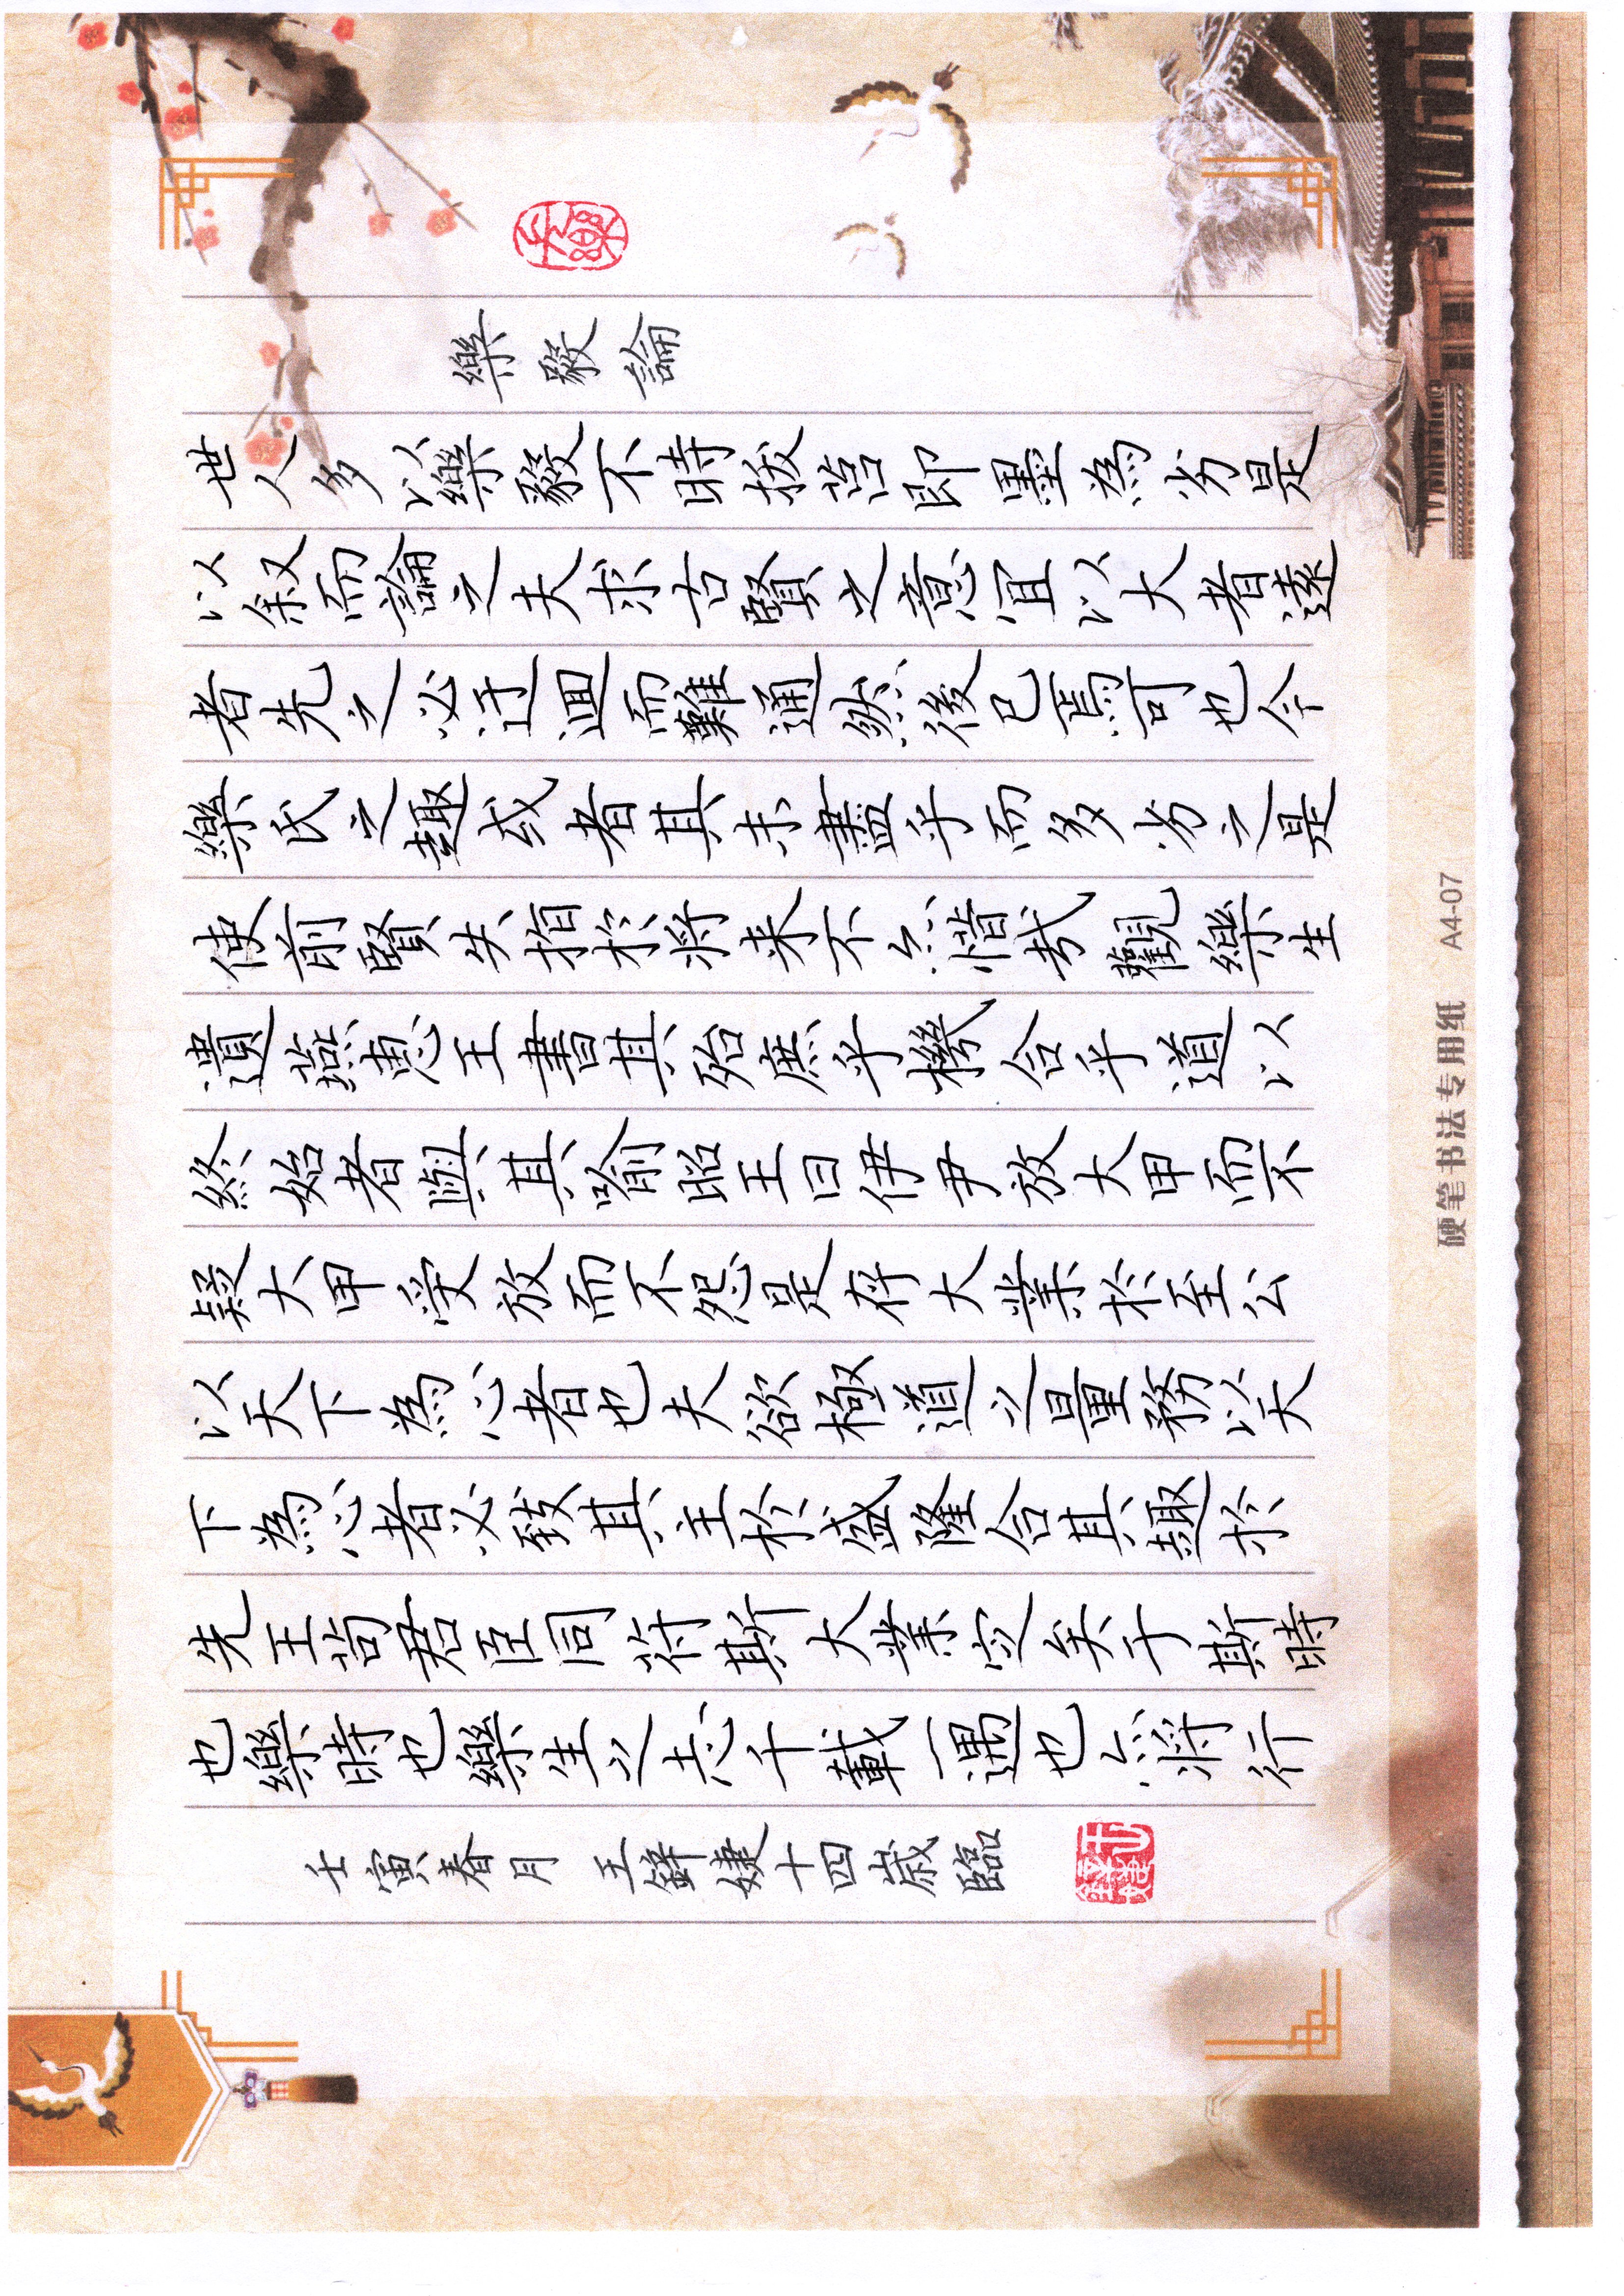 樂毅論
世人多以樂毅不時拔莒即墨為劣是
以叙而論之夫求古賢之意宜以大者遠
者先之必迂迴而難通然後已焉可也今
樂氏之趣或者其未盡乎而多劣之是
使前賢失指於將來不亦惜哉觀樂生
遺燕惠王書其殆庶乎機合乎道以
終始者與其喻昭王曰伊尹放大甲而不
疑大甲受放而不怨是存大業於至公
以天下為心者也夫欲極道之量務以天
下為心者必致其主於盛隆合其趣於
先王苟君臣同符斯大業定矣于斯時
也樂時也樂生之志千載一遇也亦將行
壬寅春月 王婕十四歲臨
硬笔书法专用纸 A4-07